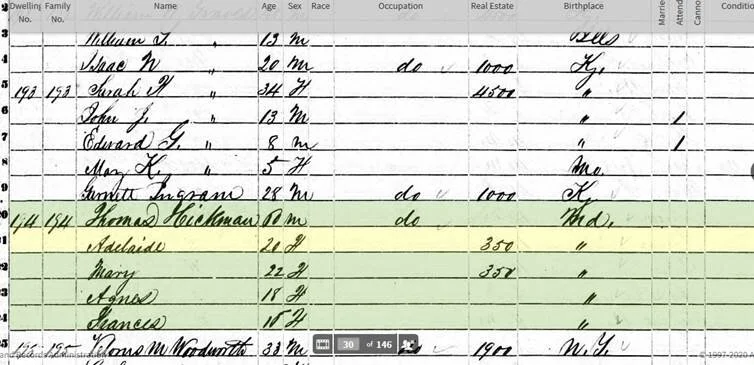 Dwelling No. Family No. Name Age Sex Race Occupation Real Estate Birthplace Married Attend Canno Conditio
William " 13 m
4 Isaac N " 20 m do 1000 Ky.
5 193 193 Sarah " 34 F 4500 "
6 John J. " 13 M " 1
7 Edward G. " 8 m " 1
8 Mary K. " 5 F Mo.
9 Ingram 28 m do 1000 K
20 194 194 Thomas Hickman m do Md.
21 Adelaide 20 F 350 "
22 Mary 22 F 350 "
23 Agnes 18 F "
24 Frances F "
25 195 195 M Woodworth 33 M do 1900 N.Y.
30 of 146
and Records Administration
© 1997-2020